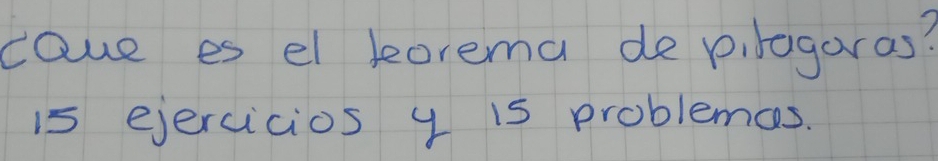 ¿Que es el teorema de pitagoras?
15 ejercicios y 15 problemas.